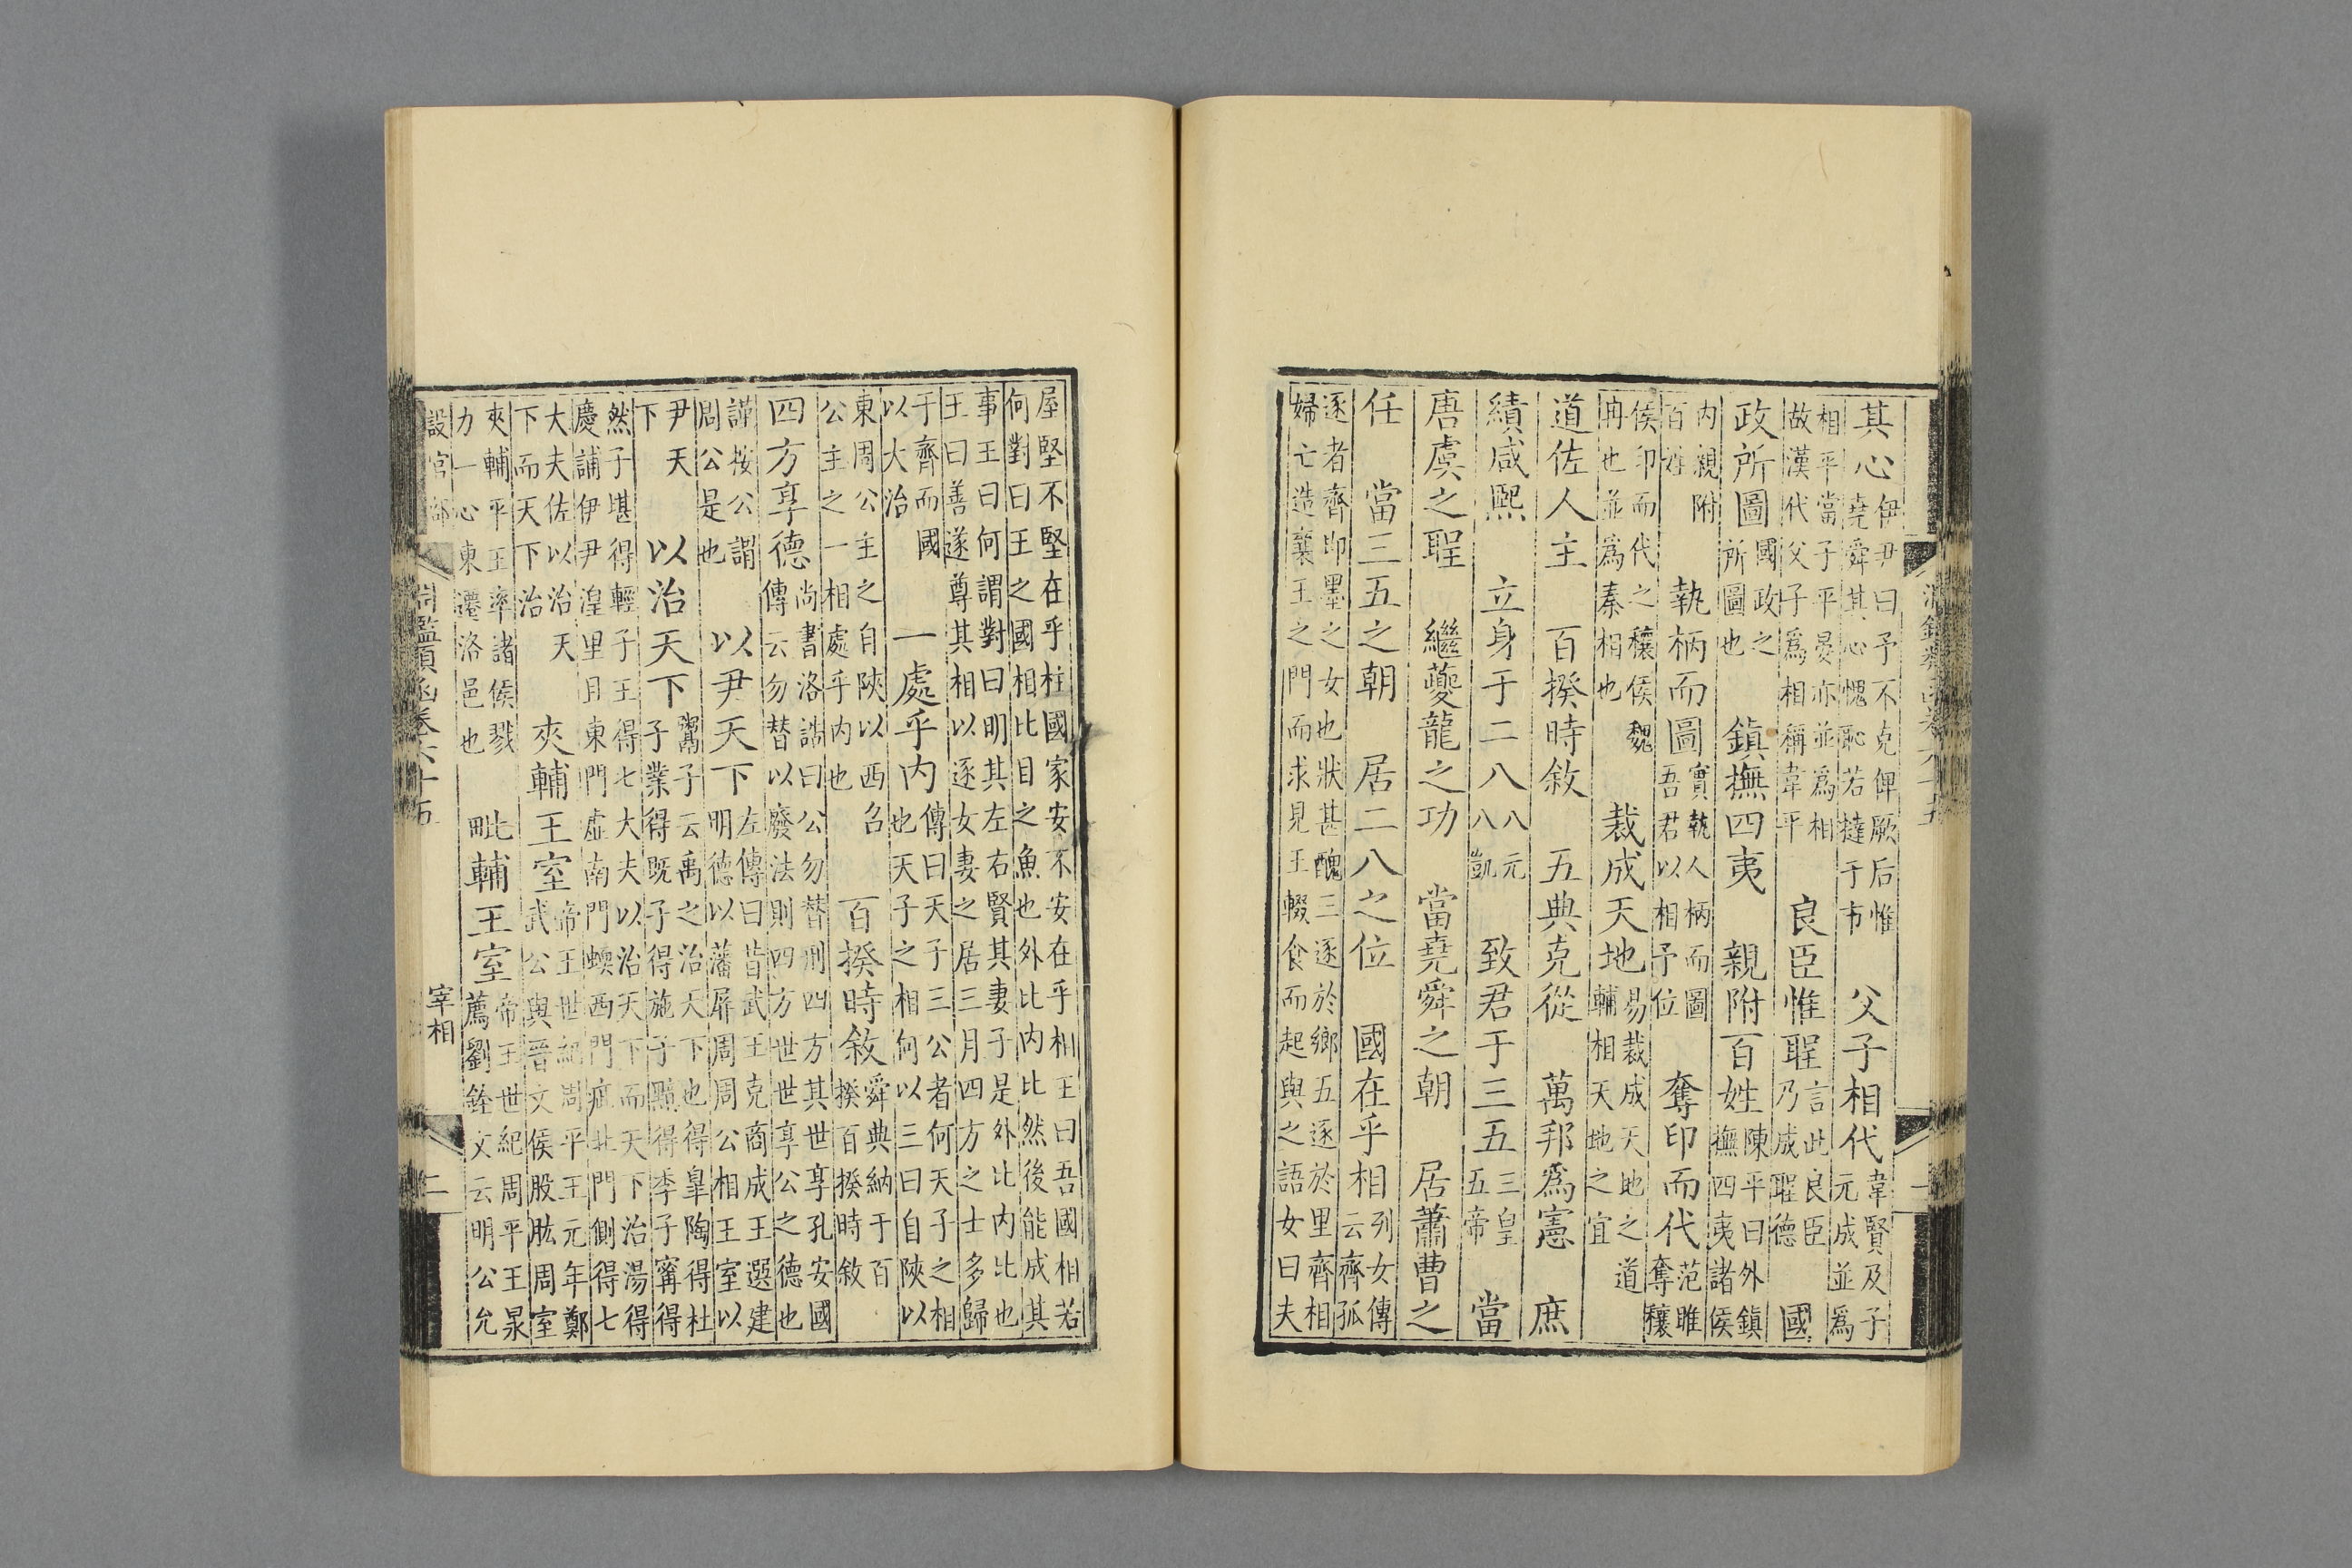 淵鑑類函卷六十五
其心伊尹曰予不克俾厥后惟堯舜其心愧恥若撻于市父子相代韋賢及子元成並爲
相平當子平晏亦並爲相故漢代父子爲相稱韋平良臣惟聖言此良臣乃成聖德國
政所圖國政之所圖也鎮撫四夷親附百姓陳平曰外鎮撫四夷諸侯
内親附百姓執柄而圖實執人柄而圖吾君以相予位奪印而代范雎奪穰
侯印而代之穰侯魏冉也並爲秦相也裁成天地易裁成天地之道輔相天地之宜
道佐人主 百揆時敘 五典克從 萬邦爲憲 庶
績咸熙 立身于二八八元八凱 致君于三五三皇五帝 當
唐虞之聖 繼夔龍之功 當堯舜之朝 居蕭曹之
任 當三五之朝 居二八之位 國在乎相列女傳云齊孤
逐者齊即墨之女也狀甚醜三逐於鄉五逐於里齊相婦亡造襄王之門而求見王輟食而起與之語女曰夫
屋堅不堅在乎柱國家安不安在乎相王曰吾國相若何對曰王之國相比目之魚也外比内比然後能成其
事王曰何謂對曰明其左右賢其妻子是外比内比也王曰善遂尊其相以逐女妻之居三月四方之士多歸
于齊而國以大治 一處乎内傳曰天子三公者何天子之相也天子之相何以三曰自陝以
東周公主之自陝以西召公主之一相處乎内也 百揆時敘舜典納于百揆百揆時敘
四方享德尚書洛誥曰公勿替刑四方其世享孔安國傳云勿替以廢法則四方世世享公之德也
謹按公謂周公是也 以尹天下左傳曰昔武王克商成王選建明德以藩屏周周公相王室以
尹天下 以治天下鬻子云禹之治天下也得皋陶得杜子業得既子得施子黯得季子寗得
然子堪得輕子王得七大夫以治天下而天下治湯得慶誧伊尹湟里且東門虛南門蝡西門疵北門側得七
大夫佐以治天下而天下治 夾輔王室帝王世紀周平王元年鄭武公與晉文侯股肱周室
夾輔平王率諸侯戮力一心東遷洛邑也 毗輔王室帝王世紀周平王泉薦劉銓文云明公允
設官部 淵鑑類函卷六十五 宰相 二